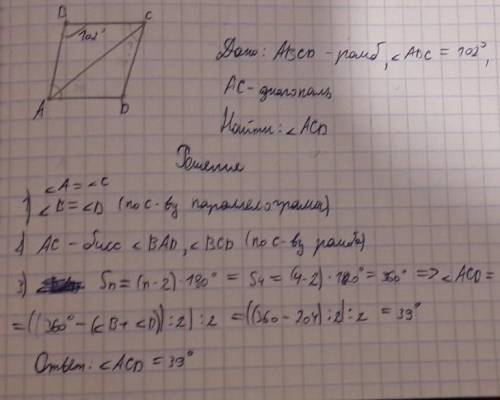 D C
102°
A D
Дано: ABCD - ромб, ∠ADC = 102°,
AC - диагональ
Найти: ∠ACD
Решение
1) ∠A = ∠C
∠B = ∠D (по св-ву параллелограма)
2) AC - бисс ∠BAD, ∠BCD (по св-ву ромба)
3) Sn = (n-2)·180° = S4 = (4-2)·180° = 360° => ∠ACD =
= ((360° - (∠B + ∠D)) : 2) : 2 = ((360 - 204) : 2) : 2 = 39°
Ответ: ∠ACD = 39°